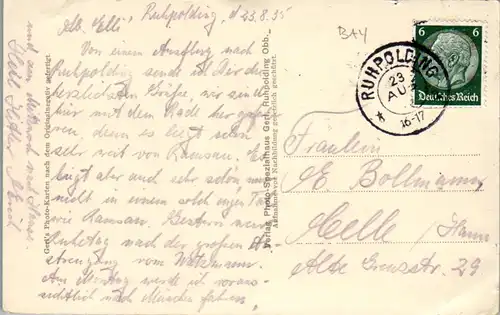 Lb. Elli! Ruhpolding, d 23.8.35
Von einem Ausflug nach
Ruhpolding sende ich Dir die
herzlichsten Grüße, wir sind
hier mit dem Rade her gefah-
ren, denn es liegt sehr
sehr weit von Ramsau. Es
liegt aber auch sehr schön nur
nicht in einem solch engen Ta
wie Ramsau. Gestern war
Ruhetag nach der großen A
strengung vom Watzmann.
Am Montag werde ich voraus-
sichtlich nach München fahren,
Gerl's Photo-Karten nach dem Originalnegativ gefertigt
Verlag Photo-Spezialhaus Gerl, Ruhpolding Obb.
Aufnahme vor Nachbildung gesetzlich geschützt.
B+4
RUHPOLDING
23
AU
16-17
6 6
Deutsches Reich
Fräulein
E. Bollmann
Celle (Hann.
Alte Grenzstr. 29